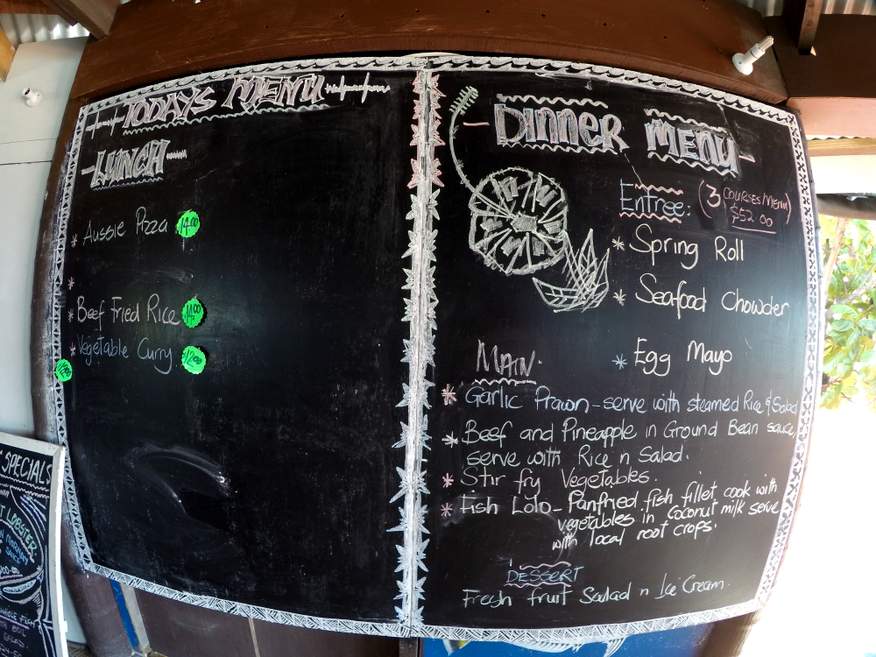 TODAYS MENU
LUNCH
* Aussie Pizza 14.00
*
* Beef Fried Rice
* Vegetable Curry
DINNER MENU
Entree: (3 COURSES/MENU)
$52.00
* Spring Roll
* Seafood Chowder
* Egg Mayo
MAIN.
* Garlic Prawn - serve with steamed Rice & Salad
* Beef and Pineapple in Ground Bean sauce,
serve with Rice n Salad.
* Stir fry Vegetables.
* Fish Lolo - Panfried fish fillet, cook with
vegetables in Coconut milk serve
with local root crops.
DESSERT
Fresh fruit Salad n Ice Cream.
SPECIALS
LOBSTER